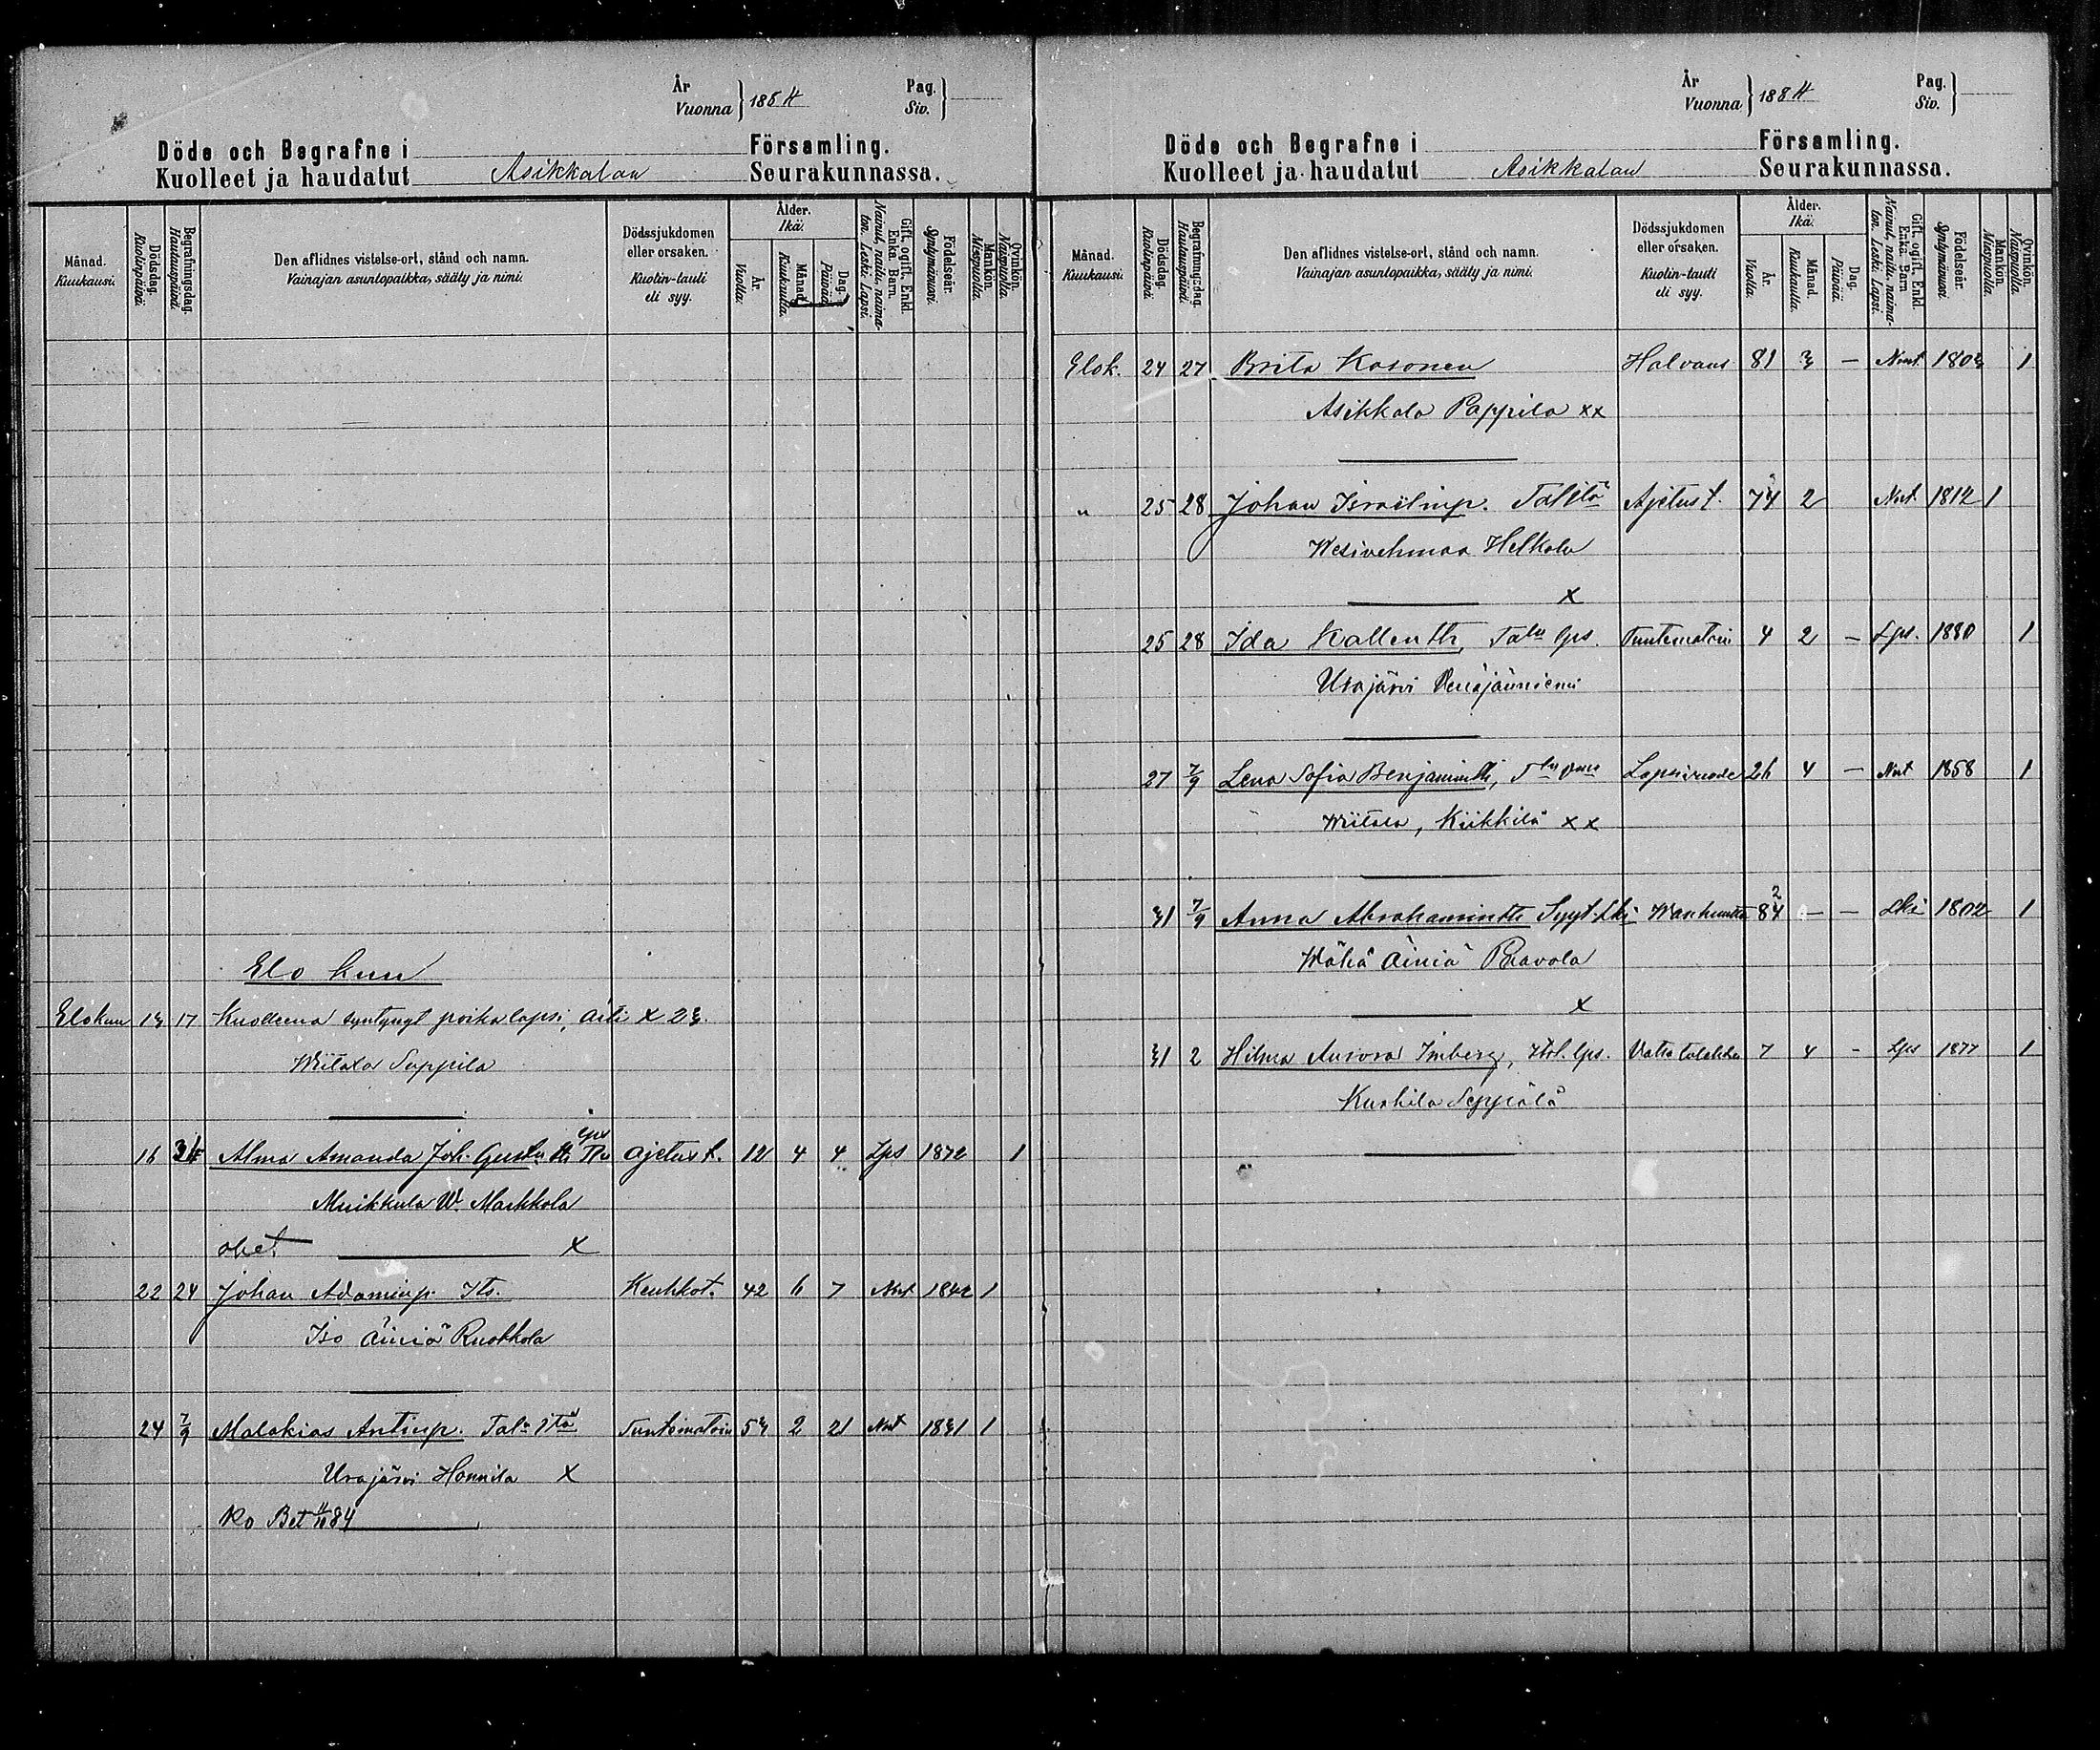 År
Vuonna } 1884
Pag.
Siv. }
Döde och Begrafne i Församling.
Kuolleet ja haudatut Asikkalan Seurakunnassa.
Månad. Kuukausi.
Dödsdag. Kuolinpäivä.
Begrafningsdag. Hautauspäivä.
Den aflidnes vistelse-ort, stånd och namn. Vainajan asuntopaikka, sääty ja nimi.
Dödssjukdomen eller orsaken. Kuolin-tauti eli syy.
Ålder. Ikä.
År. Vuotta.
Månad. Kuukautta.
Dag. Päivää.
Gift, ogift, Enkl. Enka. Barn. Nainut, naitu, naimaton. Leski. Lapsi.
Födelseår. Syntymävuosi.
Mankön. Miespuolia.
Qvinkön. Naispuolia.
Elo kuu
Elokuu 13 17 Kuolleena syntynyt poikalapsi, äiti x 23.
Wiitaila Seppilä
16 Alma Amanda Joh. Gust. tr Tln lps Ajetust. 12 4 4 Lps 1872 1
Muikkula W. Markkola
x
22 24 Johan Adaminp. Its. Keuhkot. 42 6 7 Nnt 1842 1
Iso Äiniä Ruokkola
24 7/9 Malakias Antinp. Tal: Itä Tuntematoin 53 2 21 Nnt 1831 1
Urajärvi Honnila x
Ko Bet 84
År
Vuonna } 1884
Pag.
Siv. }
Döde och Begrafne i Församling.
Kuolleet ja haudatut Asikkalan Seurakunnassa.
Månad. Kuukausi.
Dödsdag. Kuolinpäivä.
Begrafningsdag. Hautauspäivä.
Den aflidnes vistelse-ort, stånd och namn. Vainajan asuntopaikka, sääty ja nimi.
Dödssjukdomen eller orsaken. Kuolin-tauti eli syy.
Ålder. Ikä.
År. Vuotta.
Månad. Kuukautta.
Dag. Päivää.
Gift, ogift, Enkl. Enka. Barn. Nainut, naitu, naimaton. Leski. Lapsi.
Födelseår. Syntymävuosi.
Mankön. Miespuolia.
Qvinkön. Naispuolia.
Elok. 24 27 Brita Kosonen Halvaus 81 3 — Nmt 1803 1
Asikkala Pappila xx
" 25 28 Johan Israëlinp. Talitä Ajetust. 74 2 Nnt 1812 1
Wesivehmaa Helkala
x
25 28 Ida Kallentr, Taln lps. Tuntematoin 4 2 — Lps. 1880 1
Urajärvi
27 7/9 Lena Sofia Benjamintr, Lapsivuode 26 4 — Nnt 1858 1
Wiitaila, Kiikkilä xx
31 7/9 Anna Abrahamintr Syyt. Lki Wanhuutta 82 — — Lki 1802 1
Wähä Äiniä Paavola
x
31 2 Hilma Aurora Imberg, Itol. lps. 7 4 — Lps 1877 1
Kurhila Seppälä